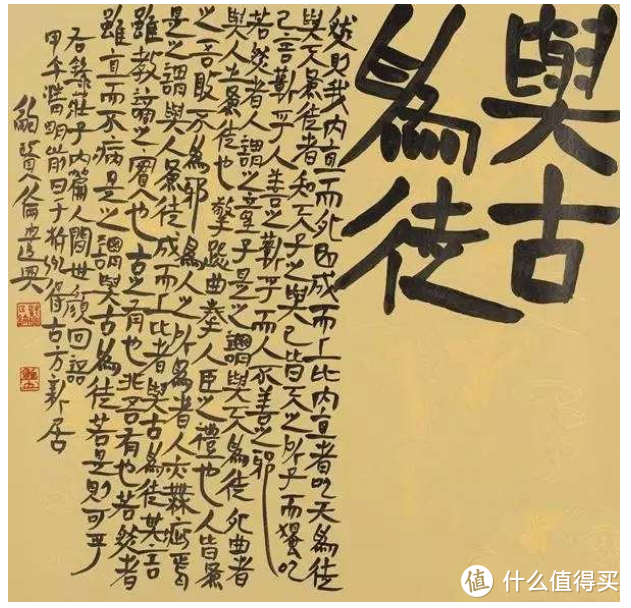 與古
為徒
然則我內直而外曲成而上比內直者以天為徒
與天為徒者知天子之與己皆天之所子而獨以
己言蘄乎人善之蘄乎而人不善之邪
若然者人謂之童子是之謂與天為徒外曲者
與人之為徒也擎跽曲拳人臣之禮也人皆為
之吾敢不為邪為人之所為者人亦無疵焉
是之謂與人為徒成而上比者與古為徒其言
雖教謫之實也古之有也非吾有也若然者
雖直而不病是之謂與古為徒若是則可乎
右錄莊子內篇人間世顏回語
甲午清明前日于杭州得古方新居
鮑賢倫
值 什么值得买